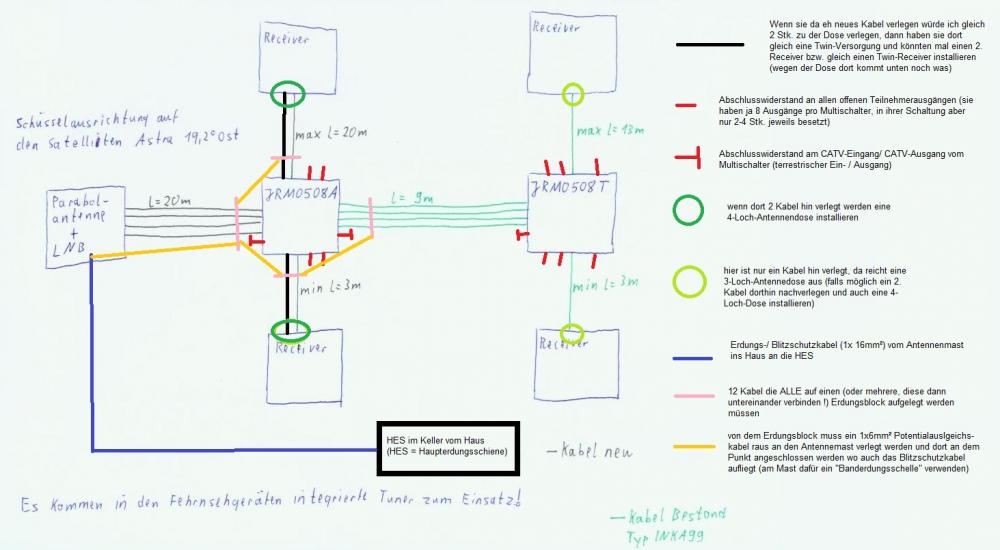 Receiver
Receiver
Schüsselausrichtung auf
den Satelliten Astra 19,2° Ost
max l=20m
max l=13m
JRM0508A
JRM0508T
Parabol-
antenne
+
LNB
l=20m
l=9m
min l=3m
min l=3m
Receiver
Receiver
HES im Keller vom Haus
(HES = Haupterdungsschiene)
– Kabel neu
Es kommen in den Fehrnsehgeräten integrierte Tuner zum Einsatz!
– Kabel Bestand
Typ INKA99
Wenn sie da eh neues Kabel verlegen würde ich gleich
2 Stk. zu der Dose verlegen, dann haben sie dort
gleich eine Twin-Versorgung und könnten mal einen 2.
Receiver bzw. gleich einen Twin-Receiver installieren
(wegen der Dose dort kommt unten noch was)
Abschlusswiderstand an allen offenen Teilnehmerausgängen (sie
haben ja 8 Ausgänge pro Multischalter, in ihrer Schaltung aber
nur 2-4 Stk. jeweils besetzt)
Abschlusswiderstand am CATV-Eingang/ CATV-Ausgang vom
Multischalter (terrestrischer Ein- / Ausgang)
wenn dort 2 Kabel hin verlegt werden eine
4-Loch-Antennendose installieren
hier ist nur ein Kabel hin verlegt, da reicht eine
3-Loch-Antennedose aus (falls möglich ein 2.
Kabel dorthin nachverlegen und auch eine 4-
Loch-Dose installieren)
Erdungs-/ Blitzschutzkabel (1x 16mm²) vom Antennenmast
ins Haus an die HES
12 Kabel die ALLE auf einen (oder mehrere, diese dann
untereinander verbinden !) Erdungsblock aufgelegt werden
müssen
von dem Erdungsblock muss ein 1x6mm² Potentialauslgeichs-
kabel raus an den Antennenmast verlegt werden und dort an dem
Punkt angeschlossen werden wo auch das Blitzschutzkabel
aufliegt (am Mast dafür ein "Banderdungsschelle" verwenden)